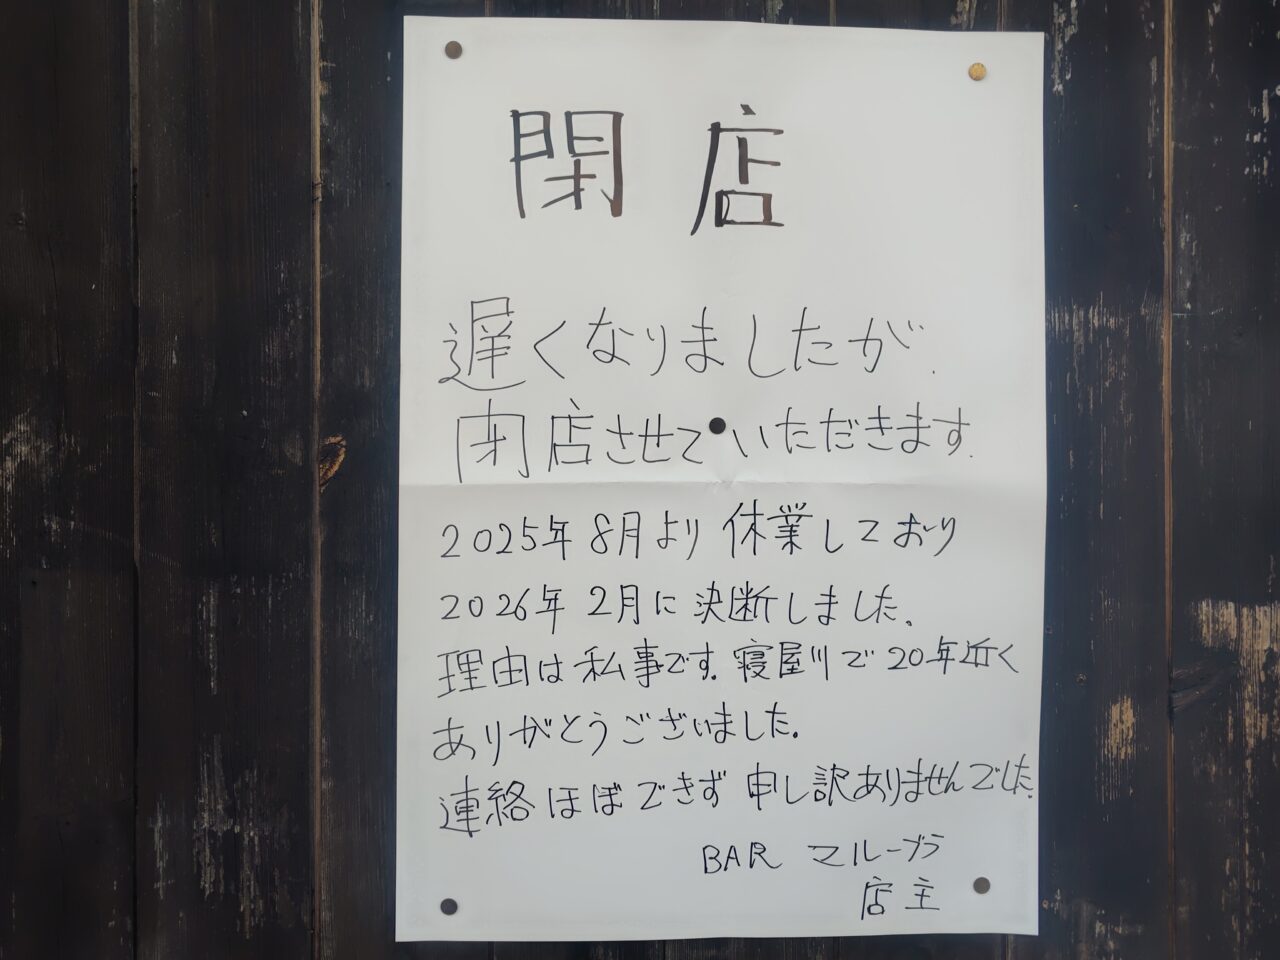 閉店
遅くなりましたが
閉店させていただきます.
2025年8月より休業しており
2026年2月に決断しました.
理由は私事です.寝屋川で20年近く
ありがとうございました.
連絡ほぼできず申し訳ありませんでした.
BAR マルーブラ
店主